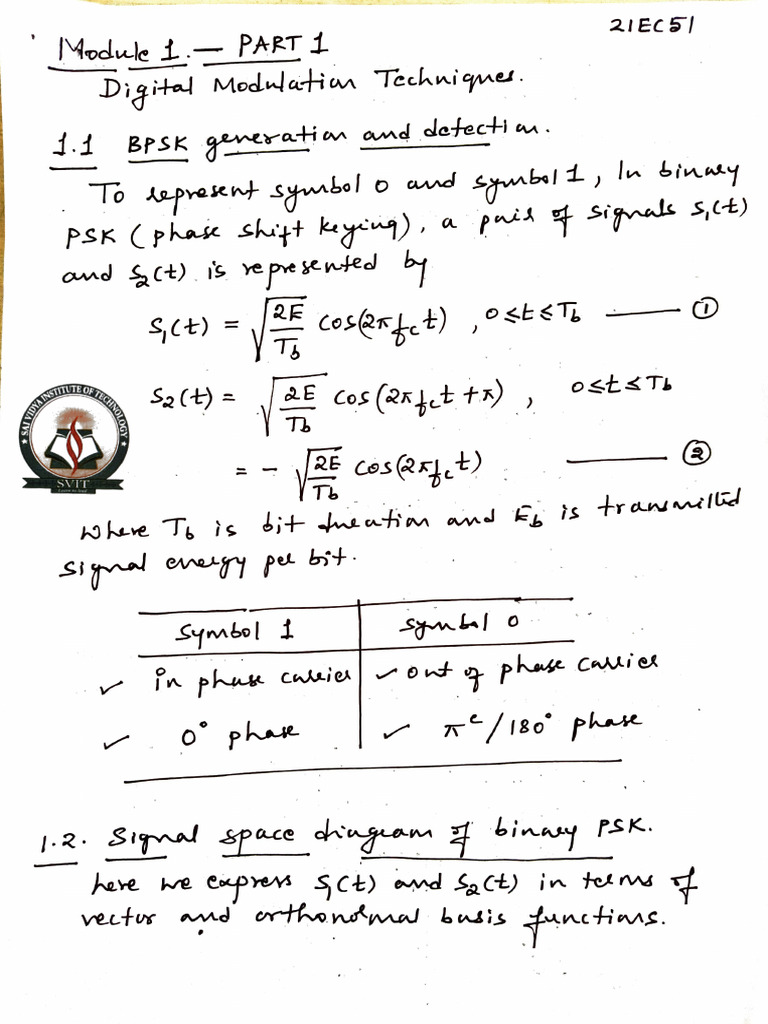 21EC51
Module 1. — PART 1
Digital Modulation Techniques.
1.1 BPSK generation and detection.
To represent symbol 0 and symbol 1, In binary
PSK (phase shift keying), a pair of signals s₁(t)
and s₂(t) is represented by
S₁(t) = √(2E/Tb) cos(2πfct) , 0≤t≤Tb —— ①
S₂(t) = √(2E/Tb) cos(2πfct + π) , 0≤t≤Tb
= - √(2E/Tb) cos(2πfct) —— ②
SAI VIDYA INSTITUTE OF TECHNOLOGY
SVIT
Learn to lead
where Tb is bit duration and Eb is transmitted
signal energy per bit.
Symbol 1 | symbol 0
✓ in phase carrier | ✓ out of phase carrier
✓ 0° phase | ✓ πᶜ/180° phase
1.2. Signal space diagram of binary PSK.
here we express S₁(t) and S₂(t) in terms of
vector and orthonormal basis functions.